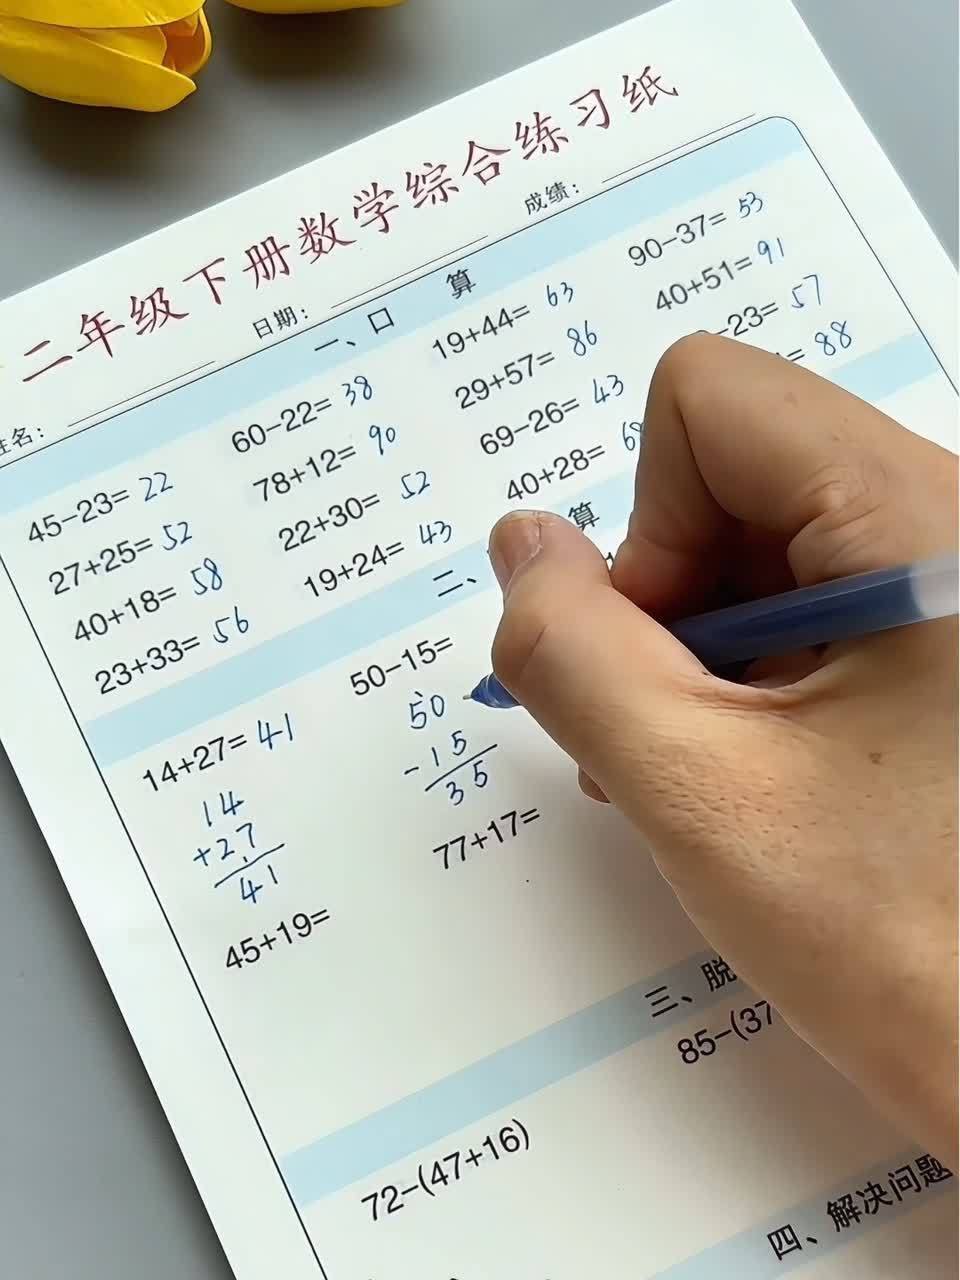 二年级下册数学综合练习纸
姓名: 日期: 成绩:
一、口 算
45-23= 22 60-22= 38 19+44= 63 90-37= 53
27+25= 52 78+12= 90 29+57= 86 40+51= 91
40+18= 58 22+30= 52 69-26= 43 -23= 57
23+33= 56 19+24= 43 40+28= 68 = 88
二、 算
14+27= 41 50-15=
14 50
+27 -15
41 35
45+19= 77+17=
三、脱
72-(47+16) 85-(37
四、解决问题